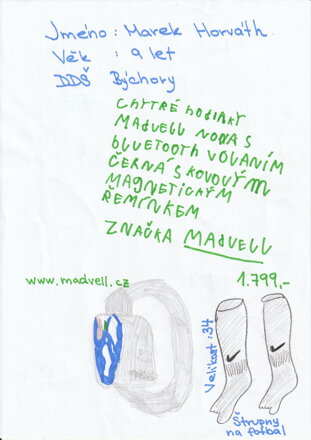 Jméno : Marek Horváth
Věk : 9 let
DDŠ Býchory
CHYTRÉ HODINKY
MADVELL NOVA S
bLUETOOTH VOLANÍM
ČERNÁ S KOVOVÝM
MAGNETICKÝM
ŘEMÍNKEM
ZNAČKA MADVELL
www.madvell.cz 1.799,-
Velikost : 34
Štrupny
na fotbal